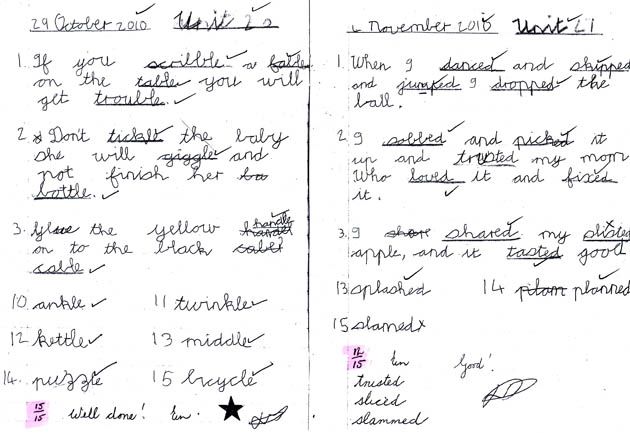 29 October 2010 Unit 20
1. If you scribble a fable
on the table you will
get trouble.
2. Don't tickle the baby
she will giggle and
not finish her
bottle.
3. Glue the yellow handle
on to the black
cable
10. ankle 11 twinkle
12 kettle 13 middle
14. puzzle 15 bicycle
15/15 Well done!
4 November 2010 Unit 21
1. When I danced and skipped
and jumped I dropped the
ball.
2. I sobbed and picked it
up and trusted my mom
Who loved it and fixed
it.
3. I share shared my slised
apple, and it tasted good
13 splashed 14 planned
15 slamed
12/15 Good!
trusted
sliced
slammed